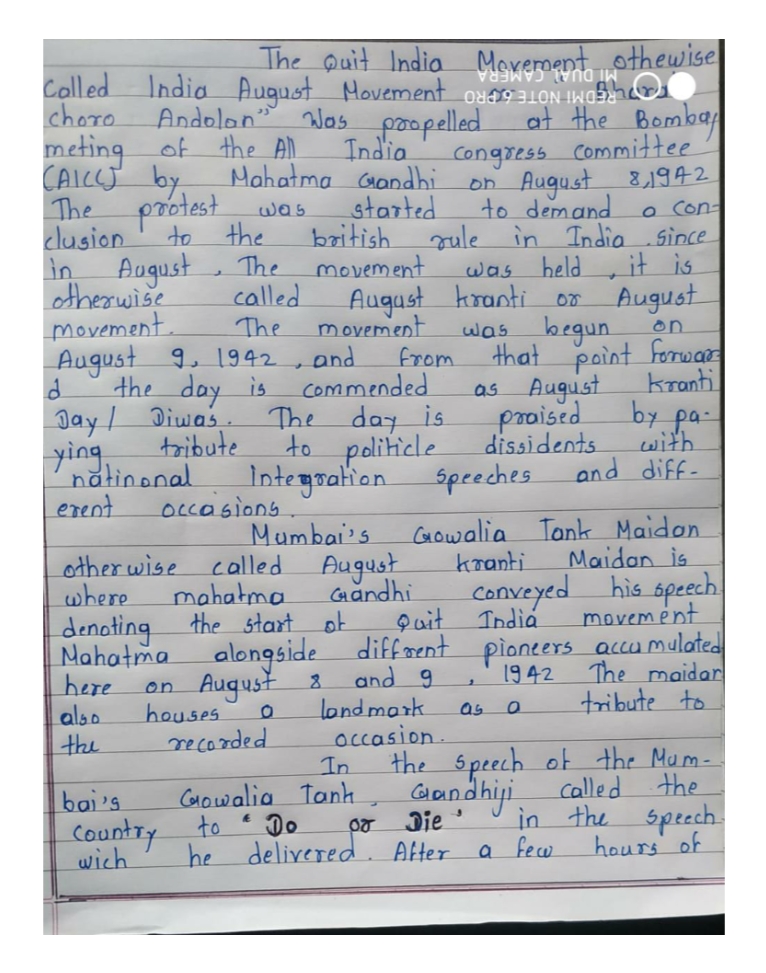 The Quit India Movement othewise
Called India August Movement or Bhara
REDMI NOTE 6 PRO
MI DUAL CAMERA
choro Andolan" Was propelled at the Bombay
meting of the All India congress committee
(AICC) by Mahatma Gandhi on August 8,1942
The protest was started to demand a con-
clusion to the british rule in India . since
in August , The movement was held , it is
otherwise called August kranti or August
movement. The movement was begun on
August 9, 1942 , and from that point forwar
d the day is commended as August Kranti
Day / Diwas. The day is praised by pa-
ying tribute to politicle dissidents with
natinonal Integration speeches and diff-
erent occasions.
Mumbai's Gowalia Tank Maidan
otherwise called August kranti Maidan is
where mahatma Gandhi conveyed his speech
denoting the start of Quit India movement
Mahatma alongside diffrent pioneers accumulated
here on August 8 and 9 , 1942 The maidan
also houses a landmark as a tribute to
the recorded occasion.
In the speech of the Mum-
bai's Gowalia Tank , Gandhiji called the
country to ' Do or Die ' in the speech
wich he delivered. After a few hours of